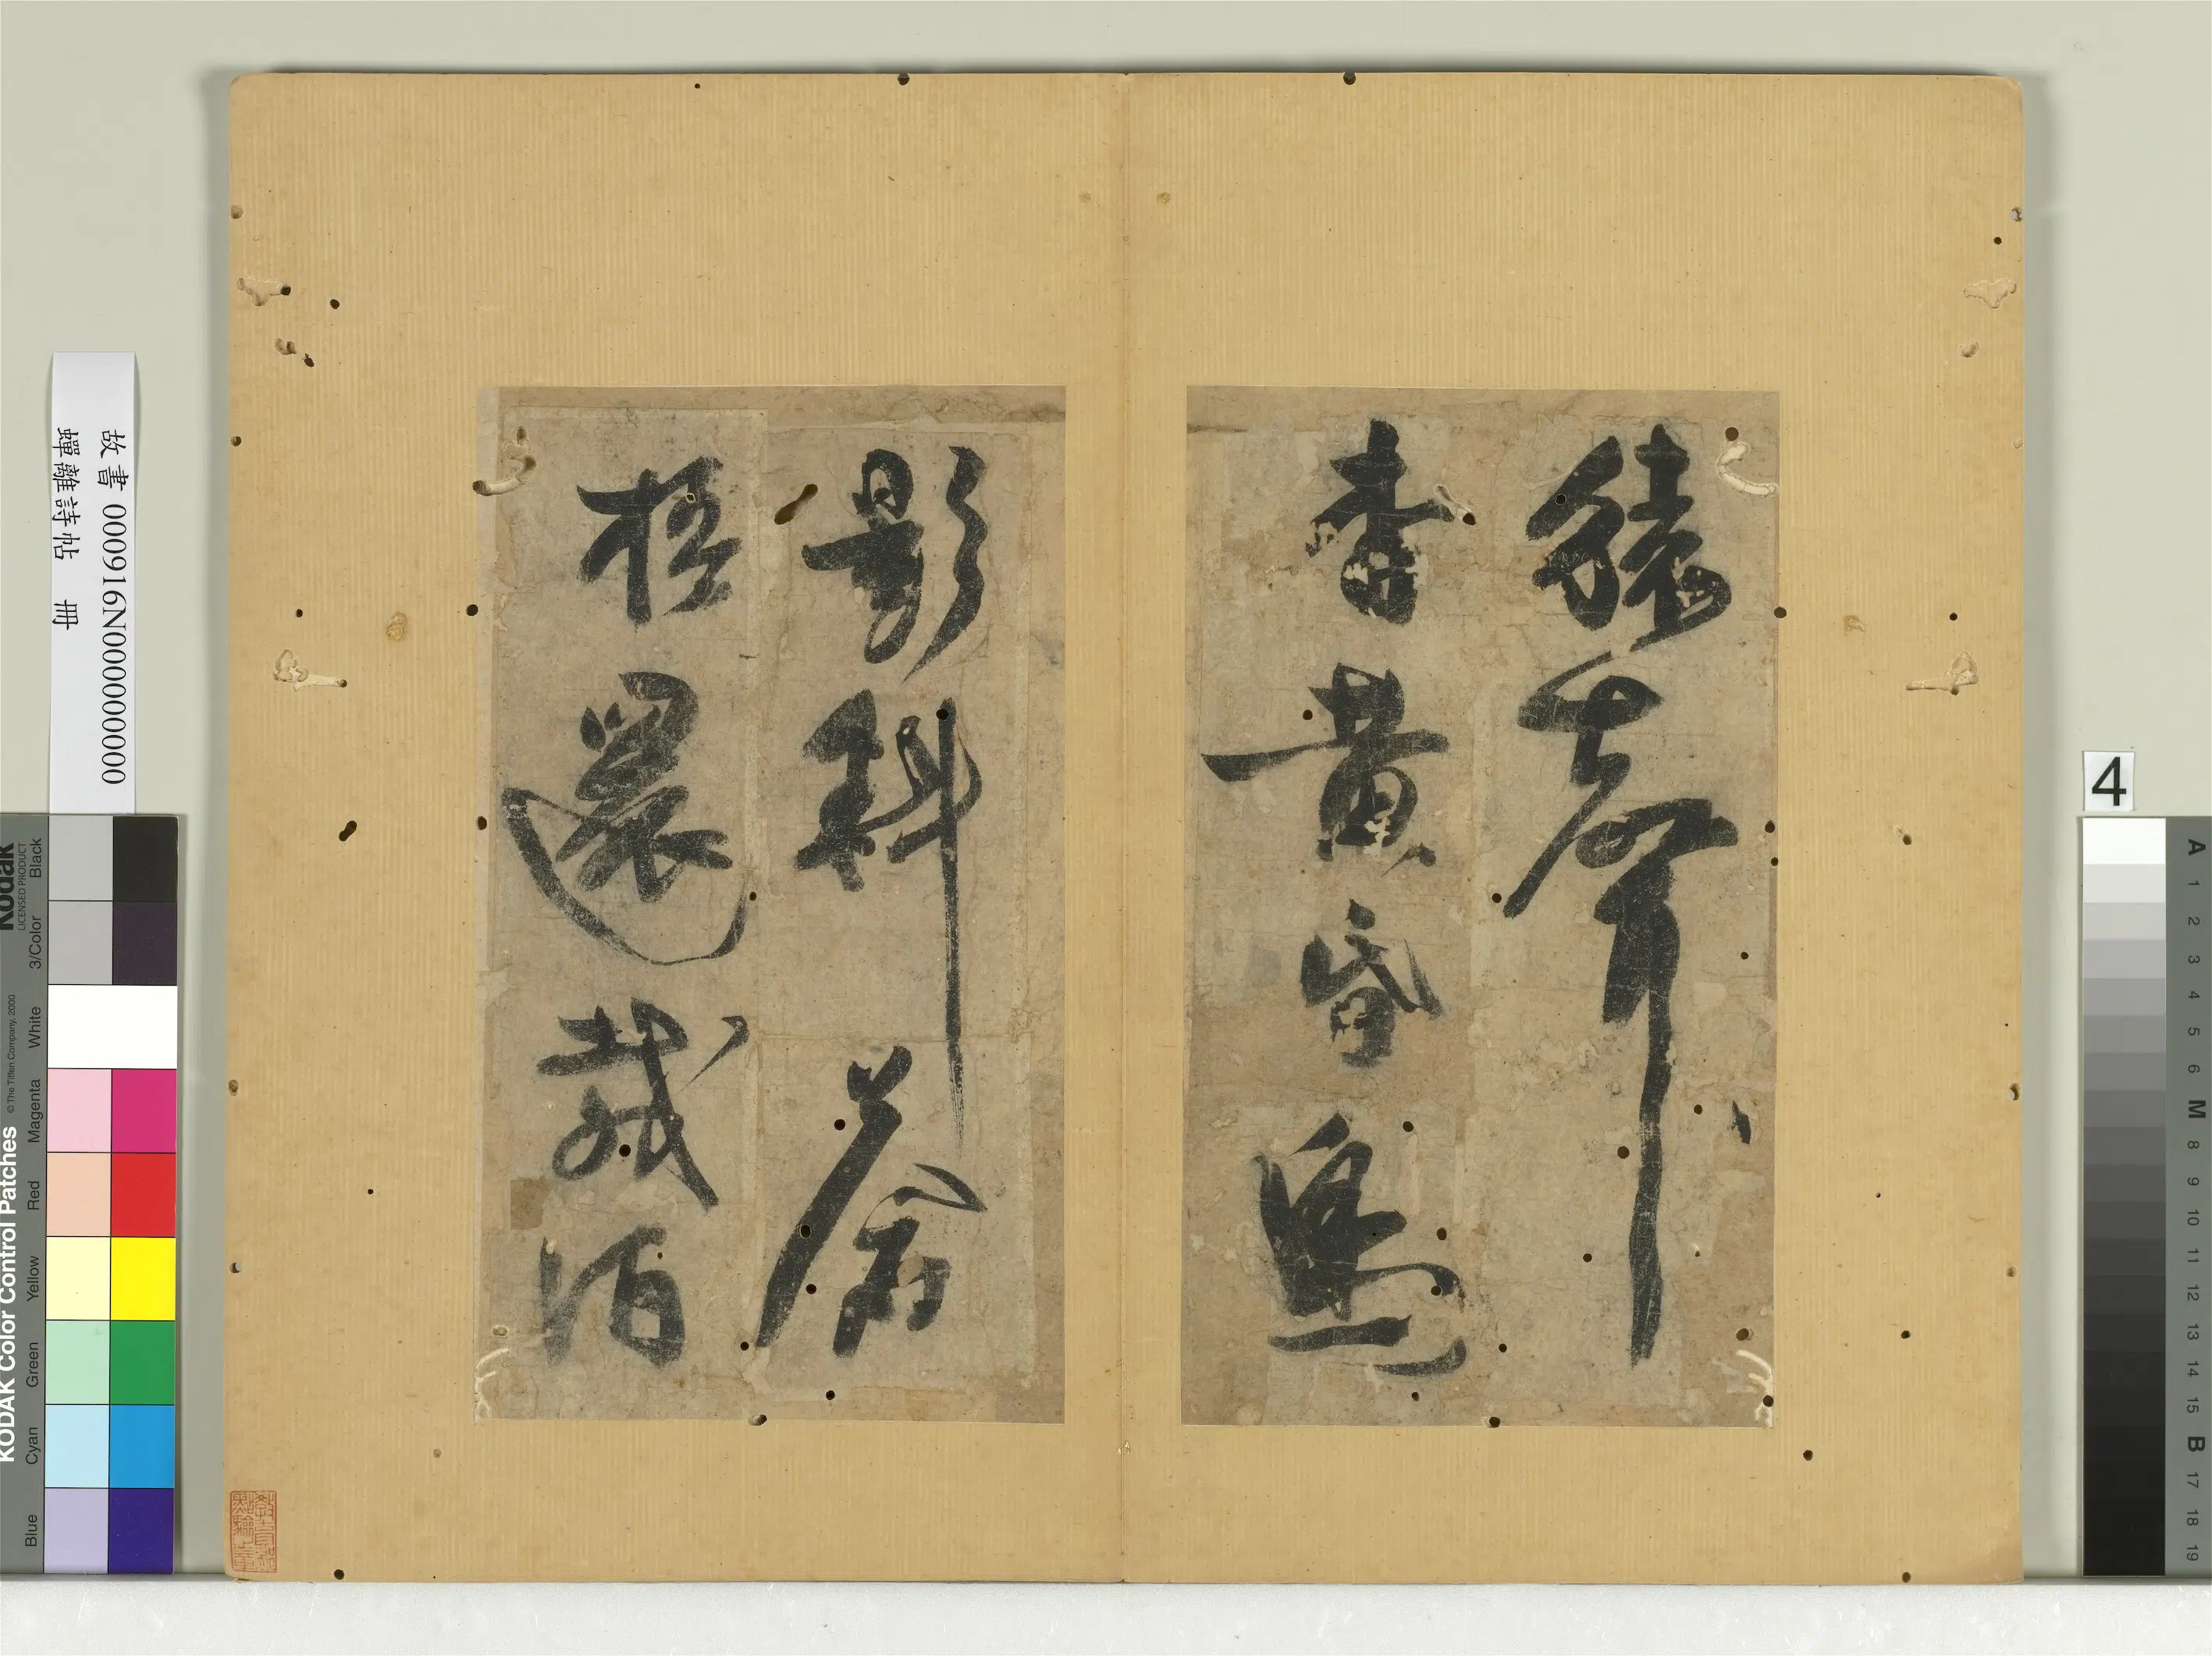 猿聲
杳黃昏鴈
影斜蒼
梧還載酒
故書 000916N000000000
蟬離詩帖 冊
KODAK Color Control Patches
© The Tiffen Company, 2000
Kodak
LICENSED PRODUCT
Blue Cyan Green Yellow Red Magenta White 3/Color Black
4
A 1 2 3 4 5 6 M 8 9 10 11 12 13 14 15 B 17 18 19